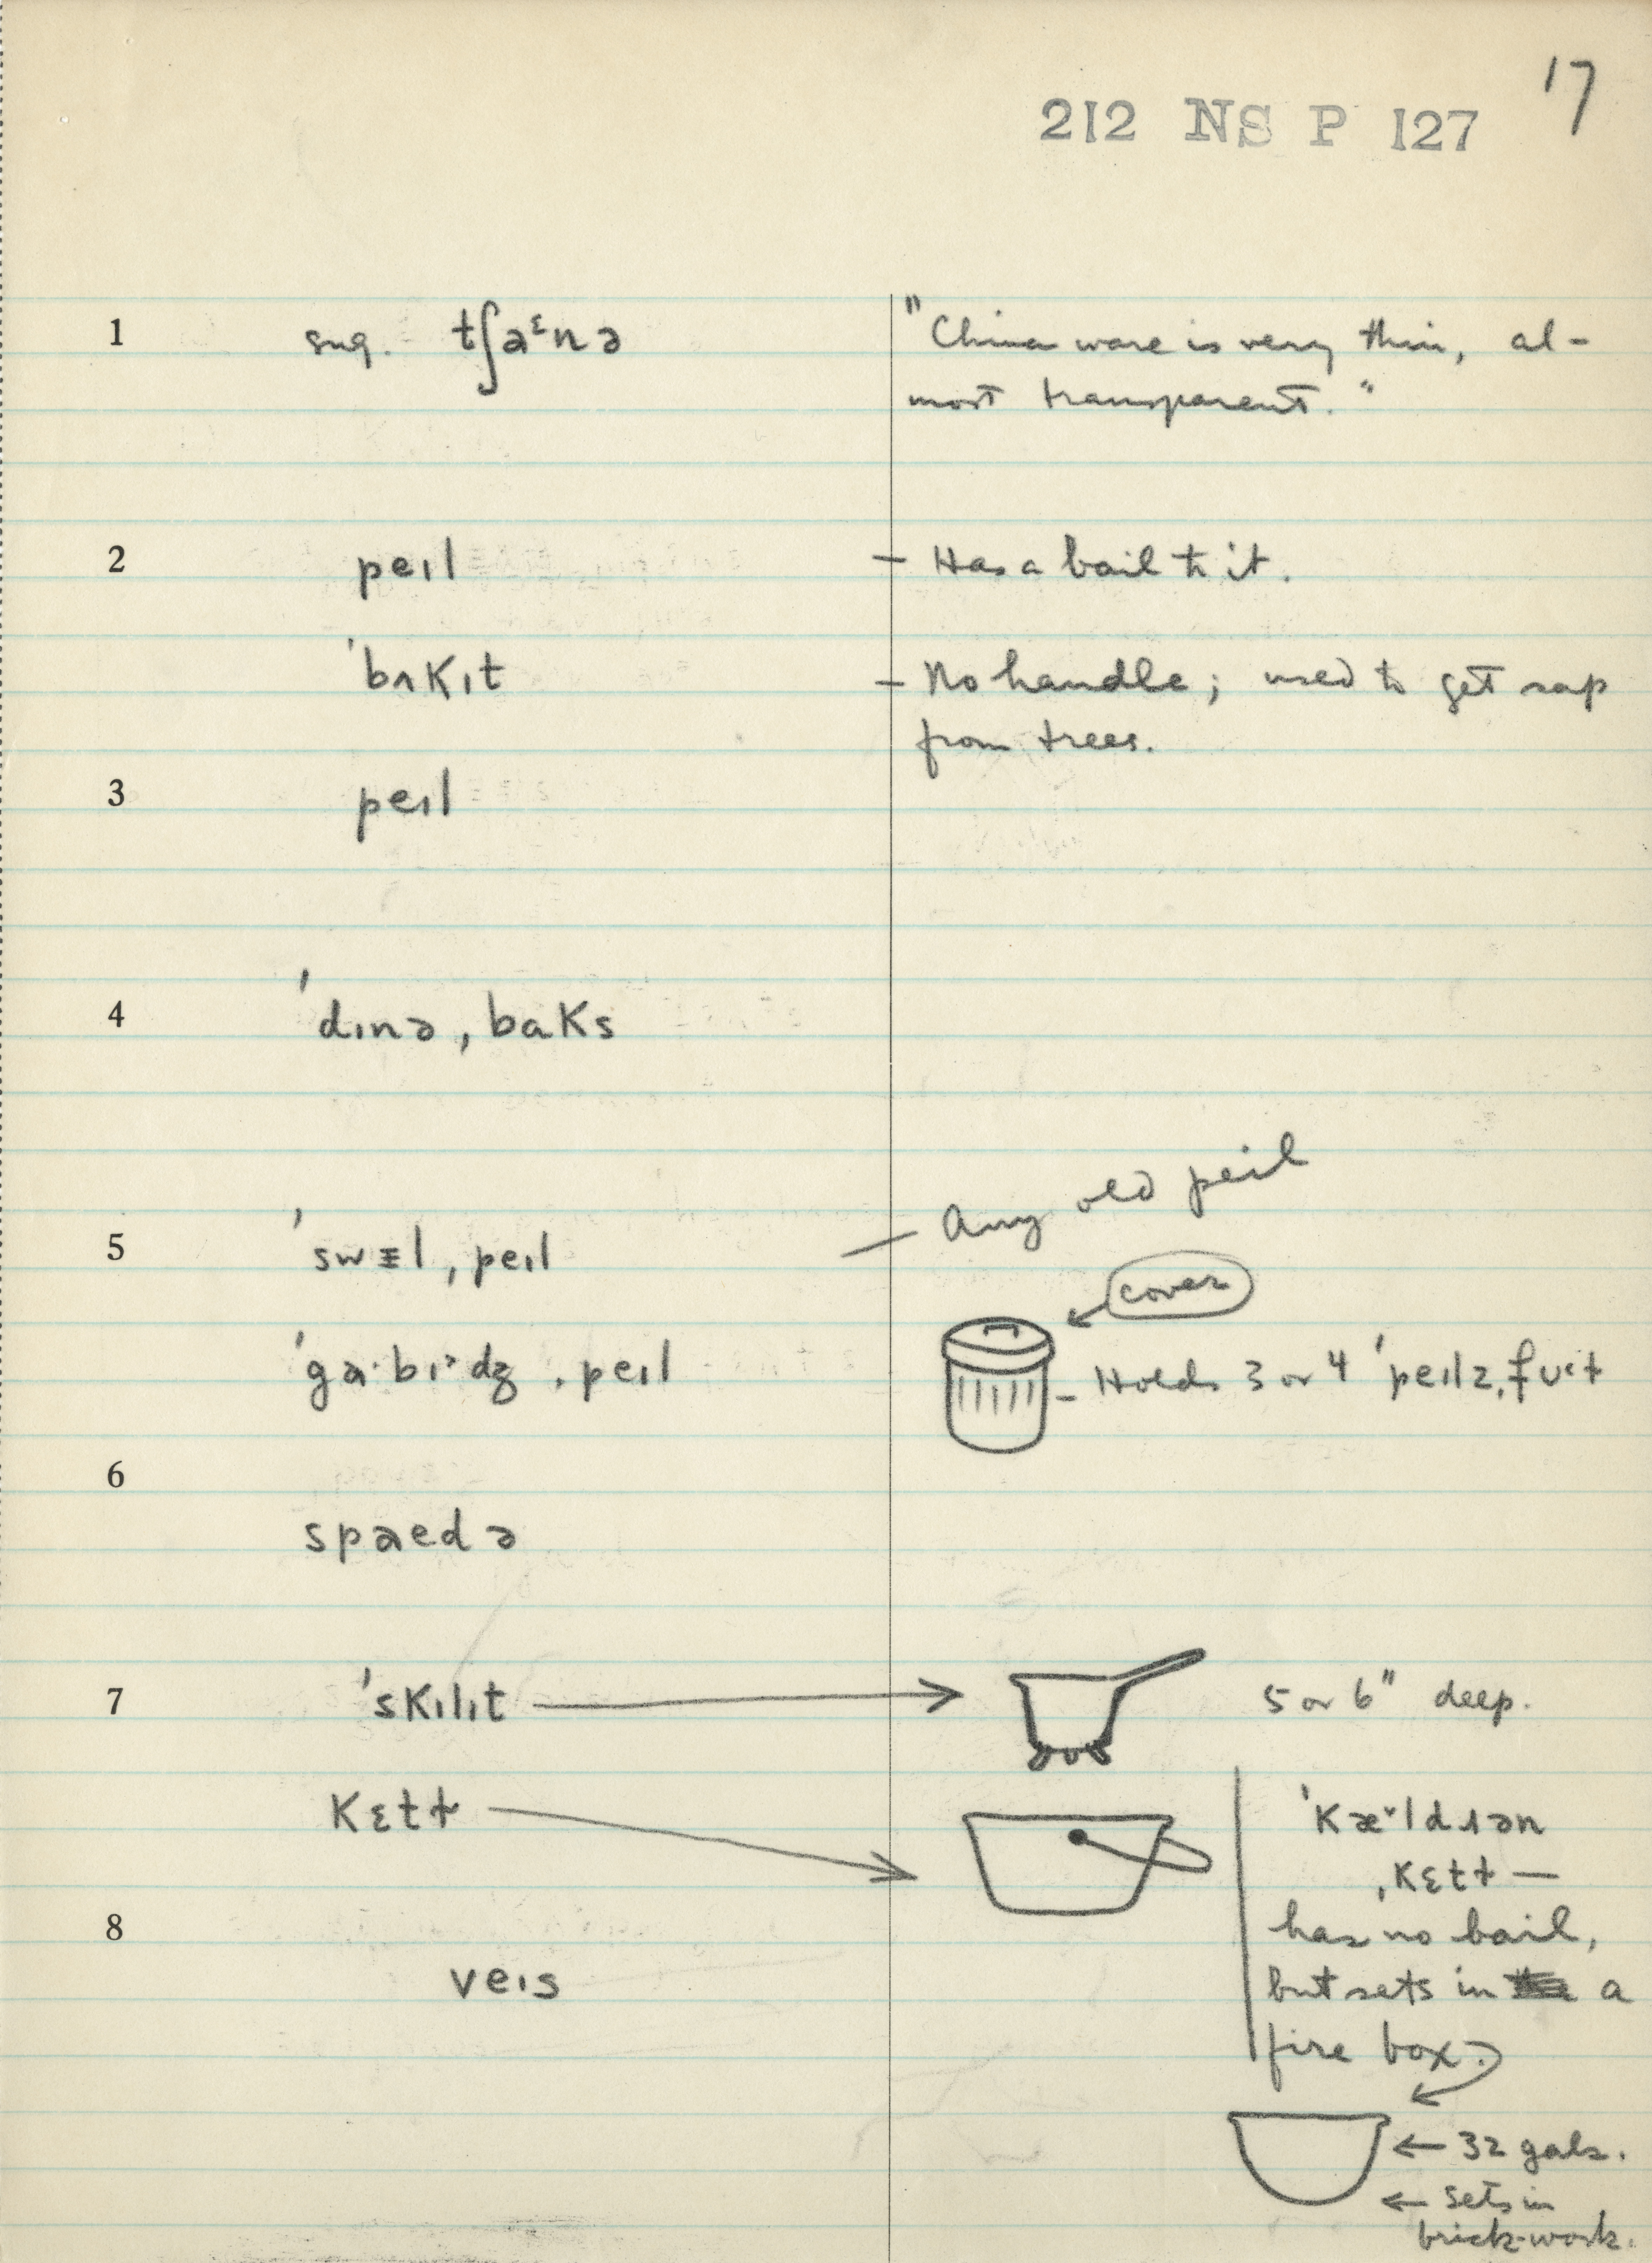 17
212 NS P 127
1 sug. tʃaᵋnə "China ware is very thin, al-
most transparent."
2 peɪl – Has a bail to it.
ˈbʌkɪt – No handle; used to get sap
from trees.
3 peɪl
4 ˈdɪnə ˌbaks
5 ˈswɪl ˌpeɪl – Any old peɪl
cover
ˈga·bɪᵊdʒ ˌpeɪl – Holds 3 or 4 ˈpeɪlz ˌfʊt
6
spaɛdə
7 ˈskɪlɪt 5 or 6" deep.
kɛtɫ ˈkæˇldɹən
ˌkɛtɫ —
8 has no bail,
veɪs but sets in a
fire box.
← 32 gals.
← Sets in
brick-work.